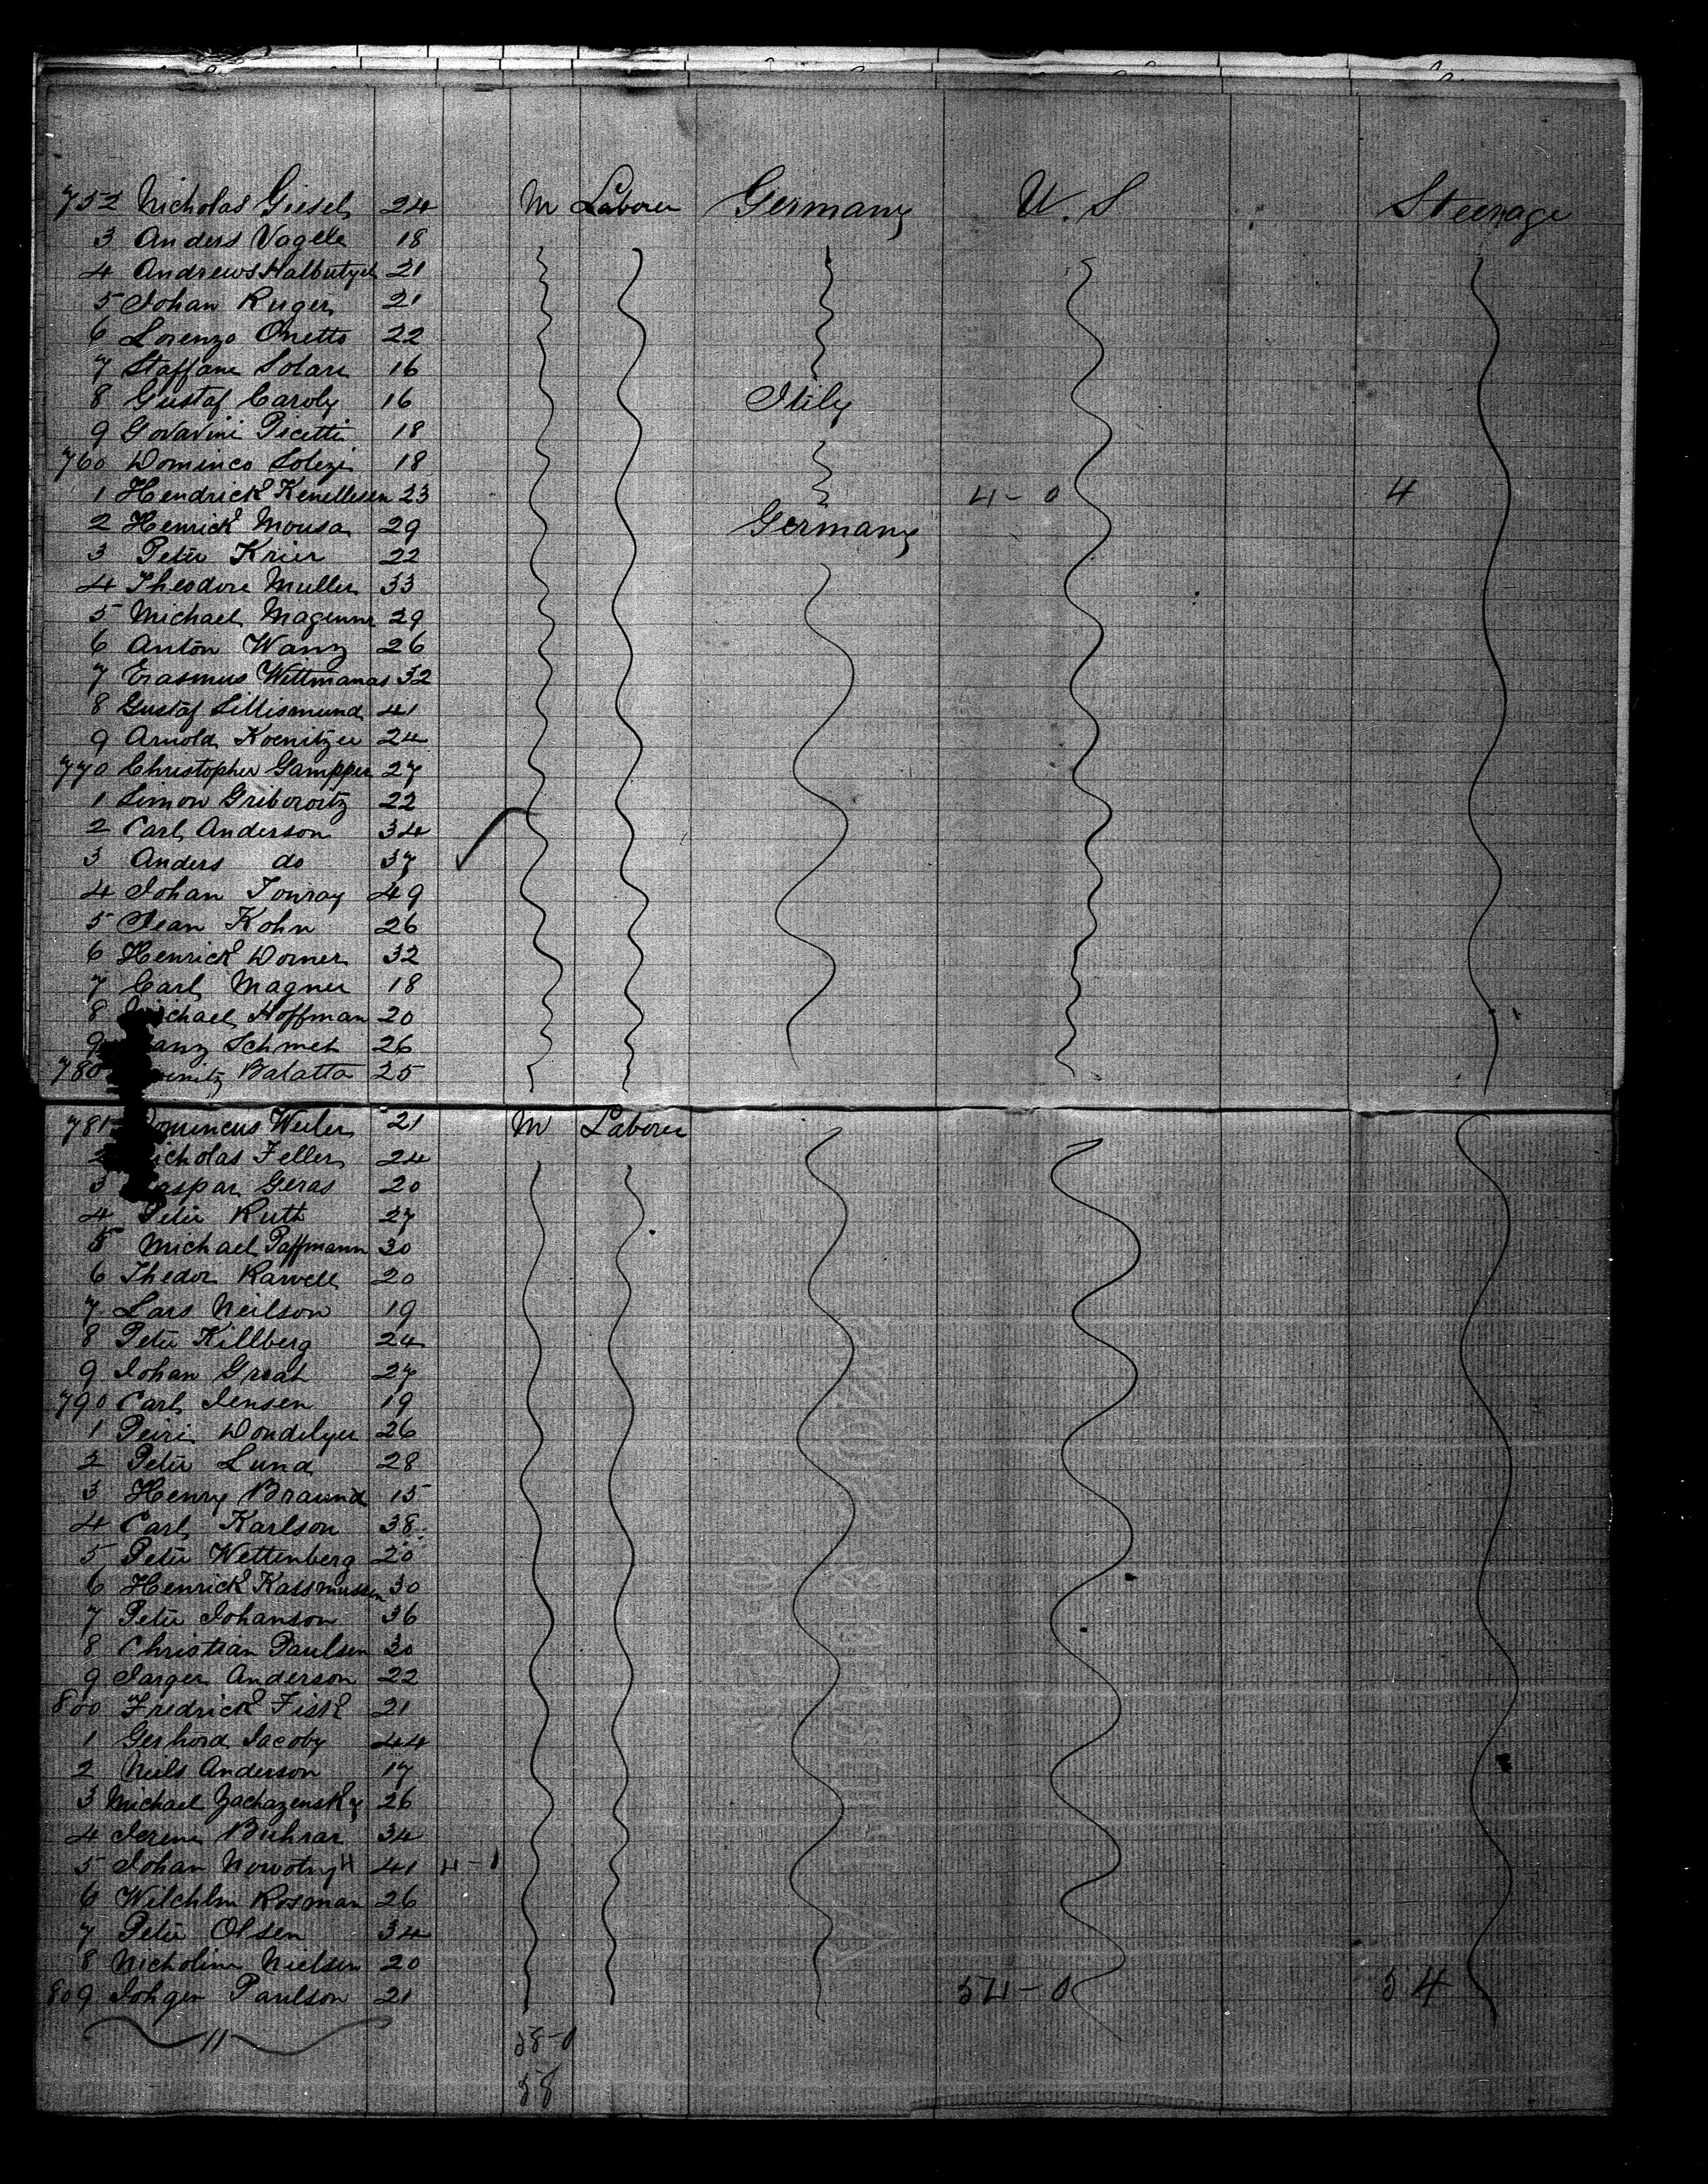 752 Nicholas Giesel 24 M Laborer Germany U.S Steerage
3 Anders Vagelle 18
4 Andrews Halbutzel 21
5 Johan Ruger 21
6 Lorenzo Onetto 22
7 Staffane Solari 16
8 Gustaf Caroly 16 Itily
9 Govavini Picetti 18
760 Dominco Solezi 18
1 Hendrick Kenellesen 23 4-0 4
2 Henrick Mousa 29 Germany
3 Peter Krier 22
4 Theodore Muller 33
5 Michael 29
6 Anton Wanz 26
7 Erasmus Wittmanas 32
8 Gustaf Sillismund 41
9 Arnold Koenitzer 24
770 Christopher Gampper 27
1 Simon Griborortz 22
2 Carl Anderson 34
3 Anders do 37
4 Johan Touray 49
5 Jean Kohn 26
6 Henrick Dorner 32
7 Carl Magner 18
8 ichael Hoffman 20
9 anz Schmet 26
780 Balatta 25
781 omincus Weiler 21 M Laborer
2 icholas Feller 24
3 aspar Geras 20
4 Peter Ruth 27
5 Michael Paffmann 30
6 Thedor Karvell 20
7 Lars Neilson 19
8 Peter Killberg 24
9 Johan Groat 27
790 Carl Jensen 19
1 Peiri Dondilyer 26
2 Peter Lund 28
3 Henry Braund 15
4 Carl Karlson 38
5 Peter Wettenberg 20
6 Henrick Kassmussen 30
7 Peter Johanson 36
8 Christian Paulsen 30
9 Jarger Anderson 22
800 Fredrick Fisk 21
1 Gerhord Jacoby 44
2 Niels Anderson 17
3 Michael Zachazensky 26
4 Jerene Buhrar 34
5 Johan Nowotny H 41 4-1
6 Wilchlm Rosman 26
7 Peter Olsen 34
8 Nicholine Nielsen 20
809 Johger Paulson 21 54-0 54
58-0
58